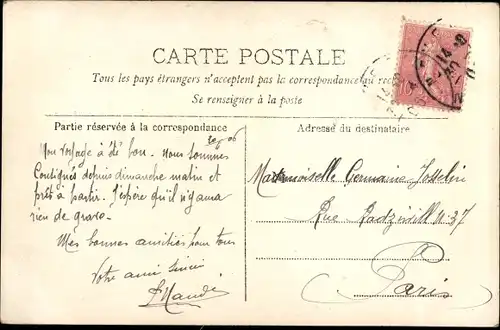 CARTE POSTALE
Tous les pays étrangers n'acceptent pas la correspondance au recto
Se renseigner à la poste
Partie réservée à la correspondance
Adresse du destinataire
Mon voyage a été bon. Nous sommes
Consignés depuis dimanche matin et
prêt à partir. J'espère qu'il n'y aura
rien de grave.
Mes bonnes amitiés pour tous
Votre ami sincère
Mademoiselle Germaine Josselin
Rue Radziwill n. 37
Paris